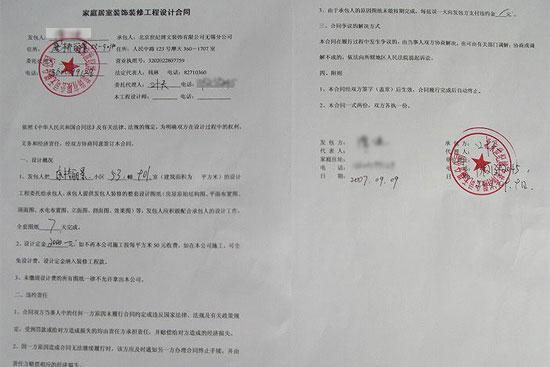 家庭居室装饰装修工程设计合同
发包人: 承包人:北京世纪博文装饰有限公司无锡分公司
住所: 住所:人民中路123号摩天360-1707室
营业执照号:3202022807759
电话: 法定代表人:钱林 电话:82710360
委托代理人: 电话:
本工程设计师: 电话:
依照《中华人民共和国合同法》及有关法律、法规的规定,为明确双方在设计过程中的权利、
义务和经济责任,经双方协商同意签订本合同。
一、设计概况
1、发包人把 小区 53 幢 901 室(建筑面积为 平方米)的设计
工程委托给承包人,承包人提供发包人装修的整套设计图纸(房屋原始结构图、平面布置图、
顶面图、水电布置图、立面图、剖面图、效果图)等,发包人应积极配合承包人的设计工作,
全套图纸 7 天完成。
2、设计定金 2000元 如不再本公司施工按每平方米50元收费,如在本公司施工,可全
免设计费,设计定金纳入装修工程款。
3、未缴清设计费的所有图纸一律不允许拿出本公司。
二、违约责任
1、合同双方当事人中的任何一方原因未履行合同约定或违反国家法律、法规及有关政策规
定,受到罚款或给对方造成损失的均由责任方承担责任,并赔偿给对方造成的经济损失。
2、因一方原因造成合同无法继续履行时,该方应及时通知另一方办理合同终止手续,并由
责任方赔偿相应的经济损失。
3、由于承包人的原因图纸未能按期完成,每延误一天向发包方支付违约金
三、合同争议的解决方式
本合同在履行过程中发生争议的,由当事人双方协商解决,也可由有关部门调解,协商或调
解不成的,依法向所辖地区人民法院提起诉讼。
四、附则
1、本合同经双方签字(盖章)后生效,合同履行完成后自动终止。
2、本合同一式两份,双方各一份。
发包方: 承包方:
代表人: 代表人:
家庭住址:
电话: 电话:
日期:2007.09.09 日期: